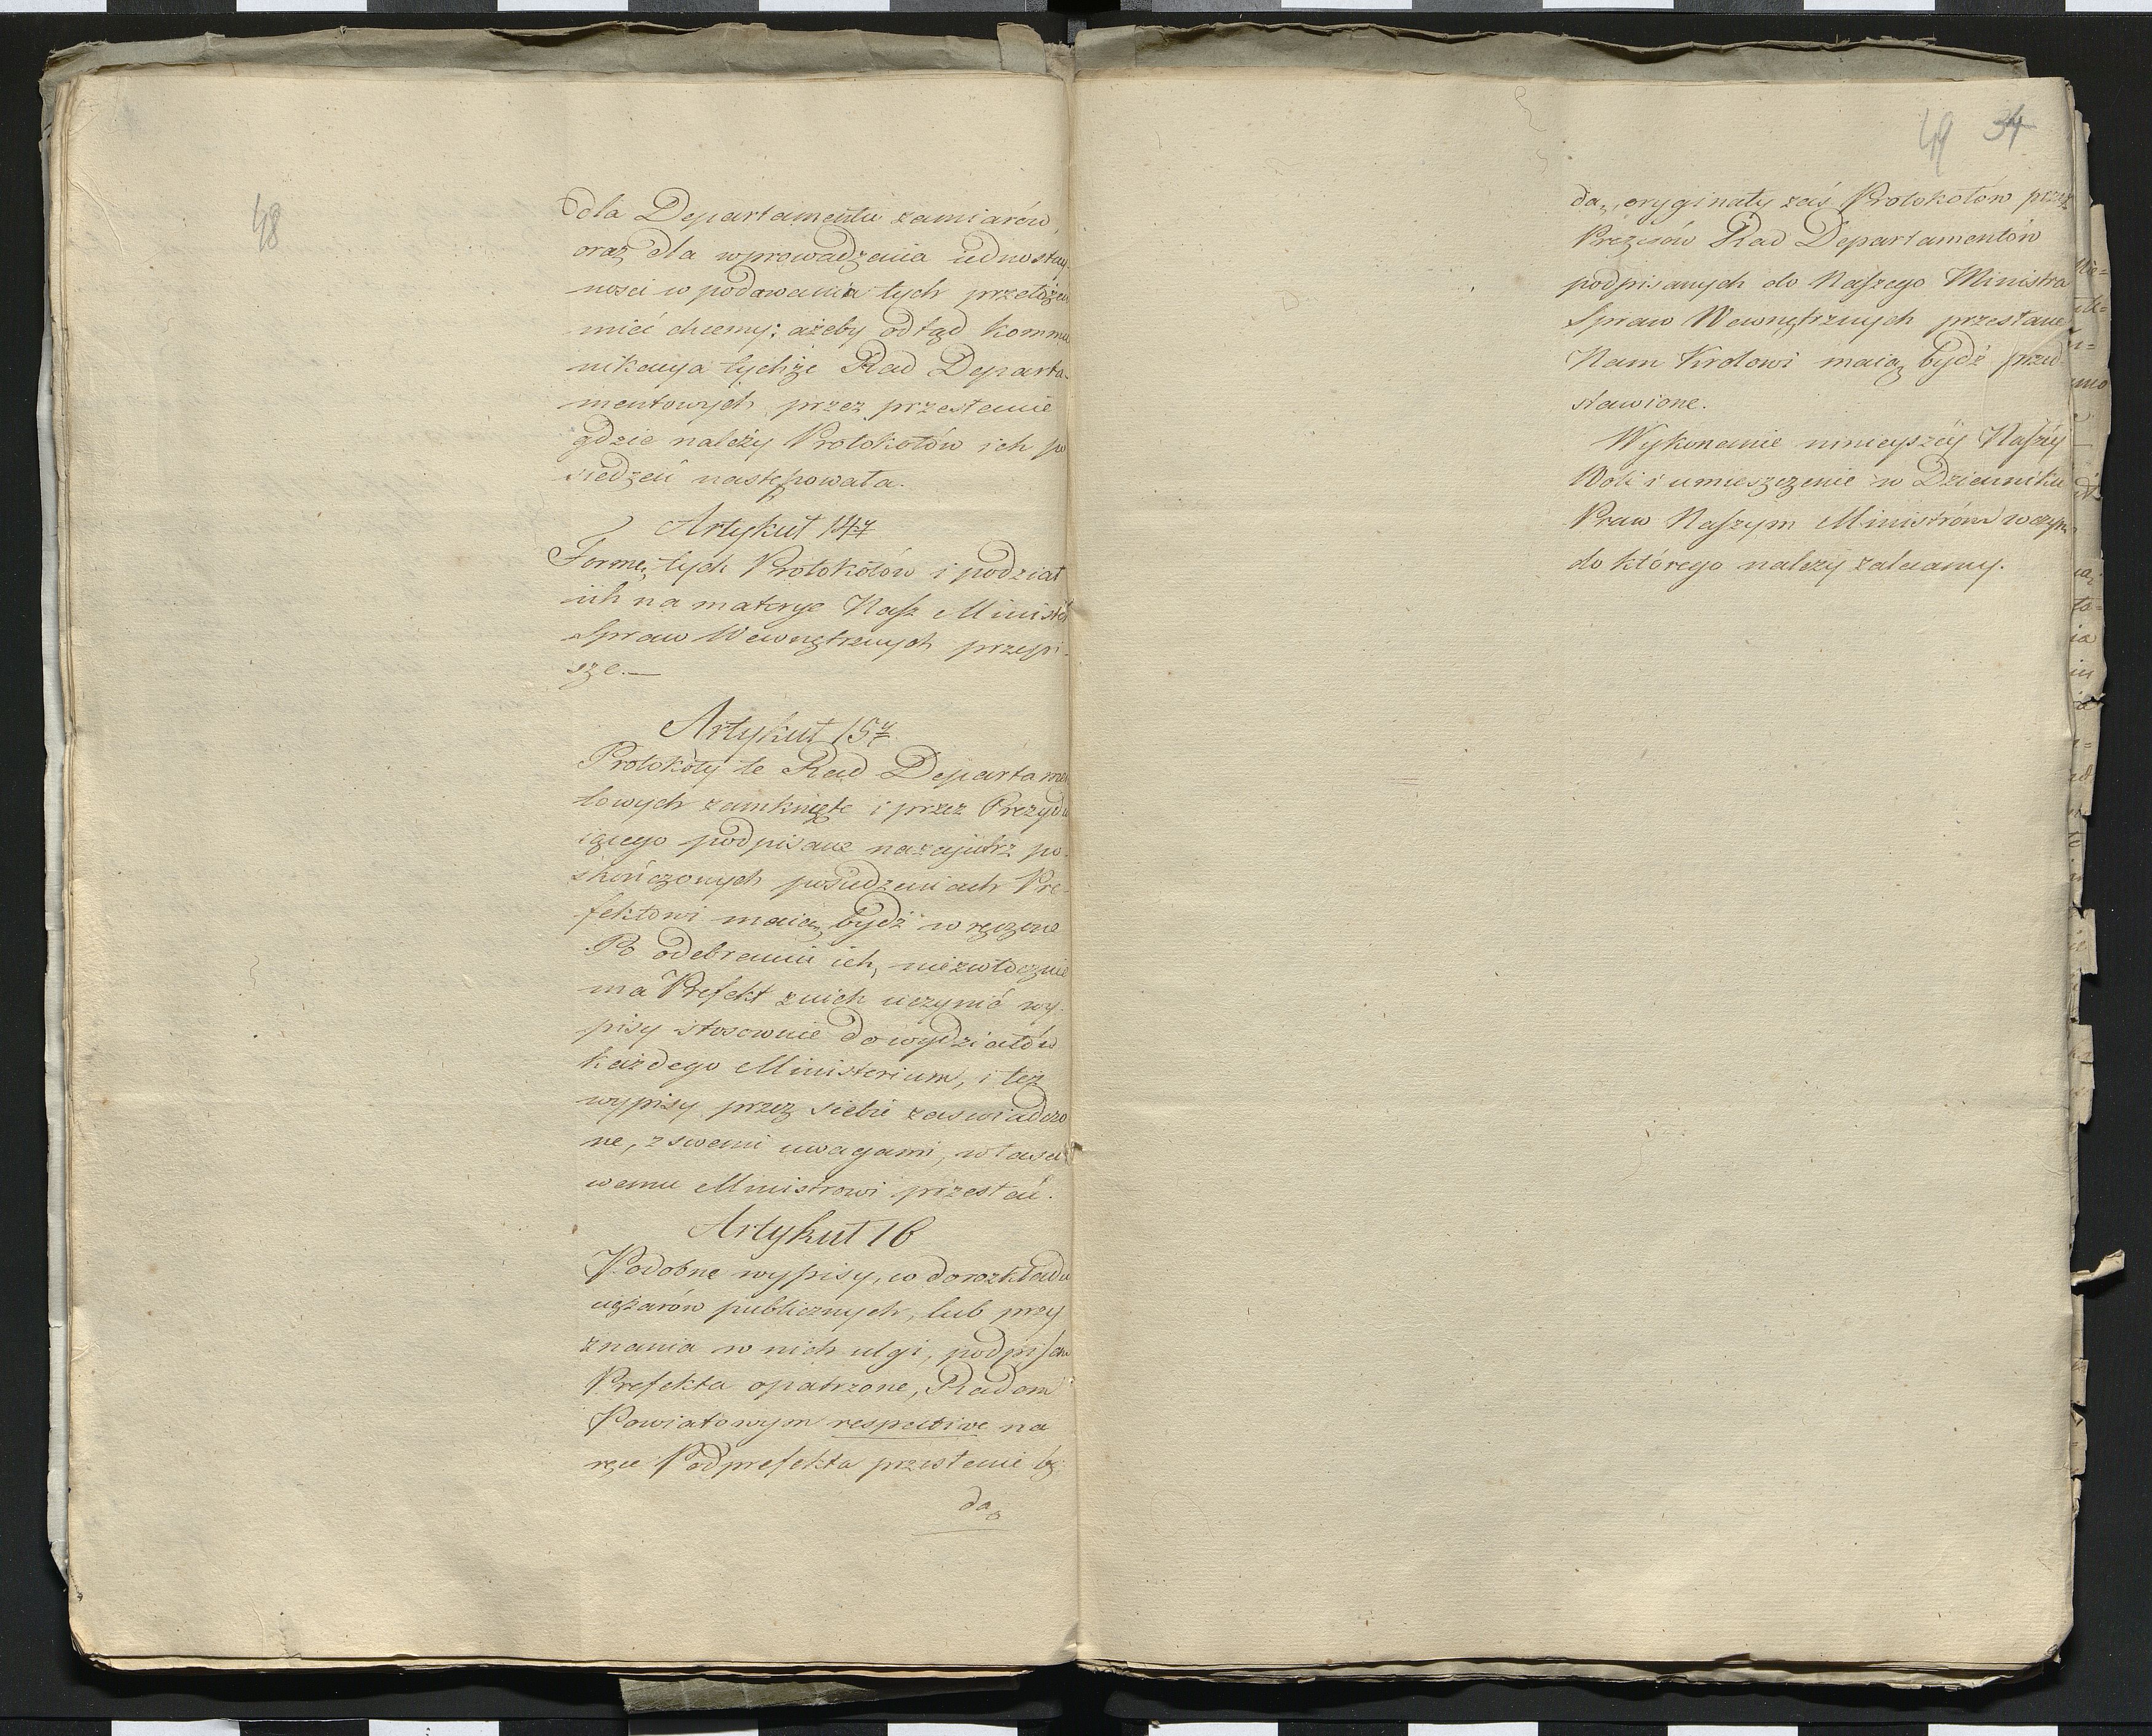 48
dla Departamentu zamiarów,
oraz dla wprowadzenia iednostay-
ności w podawaniu tych przełożeń
mieć chcemy; ażeby odtąd Kommu
nikacya tychże Rad Departa-
mentowych przez przesłanie
gdzie należy Protokołów ich po
siedzeń następowała.
Artykuł 14ty
Formę tych Protokółów i podział
ich na materye Nasz Minister
Spraw Wewnętrznych przepi-
sze.—
Artykuł 15ty
Protokóły te Rad Departamen
towych zamknięte i przez Prezydu
iącego podpisane nazajutrz po
skończonych posiedzeniach Pre-
fektowi maią bydź wręczone
Po odebraniu ich, niezwłocznie
ma Prefekt z nich uczynić wy-
pisy stosownie do wydziałów
każdego Ministerium, i też
wypisy przez siebie zaswiadczo
ne, z swemi uwagami, właści
wemu Ministrowi przesłać.
Artykuł 16
Podobne wypisy, co do rozkładu
ciężarów publicznych, lub przy
znania w nich ulgi, podpisem
Prefekta opatrzone, Radom
Powiatowym respective na
ręce Podprefekta przesłane bę
dą
49 34
dą, oryginały zaś Protokołów przez
Prezesów Rad Departamentów
podpisanych do Naszego Ministra
Spraw Wewnętrznych przesłane
Nam Krolowi maią bydź przed-
stawione.
Wykonanie ninieyszéy Naszéy
Woli i umieszczenie w Dzienniku
Praw Naszym Ministróm w czym
do którego należy zalecamy.